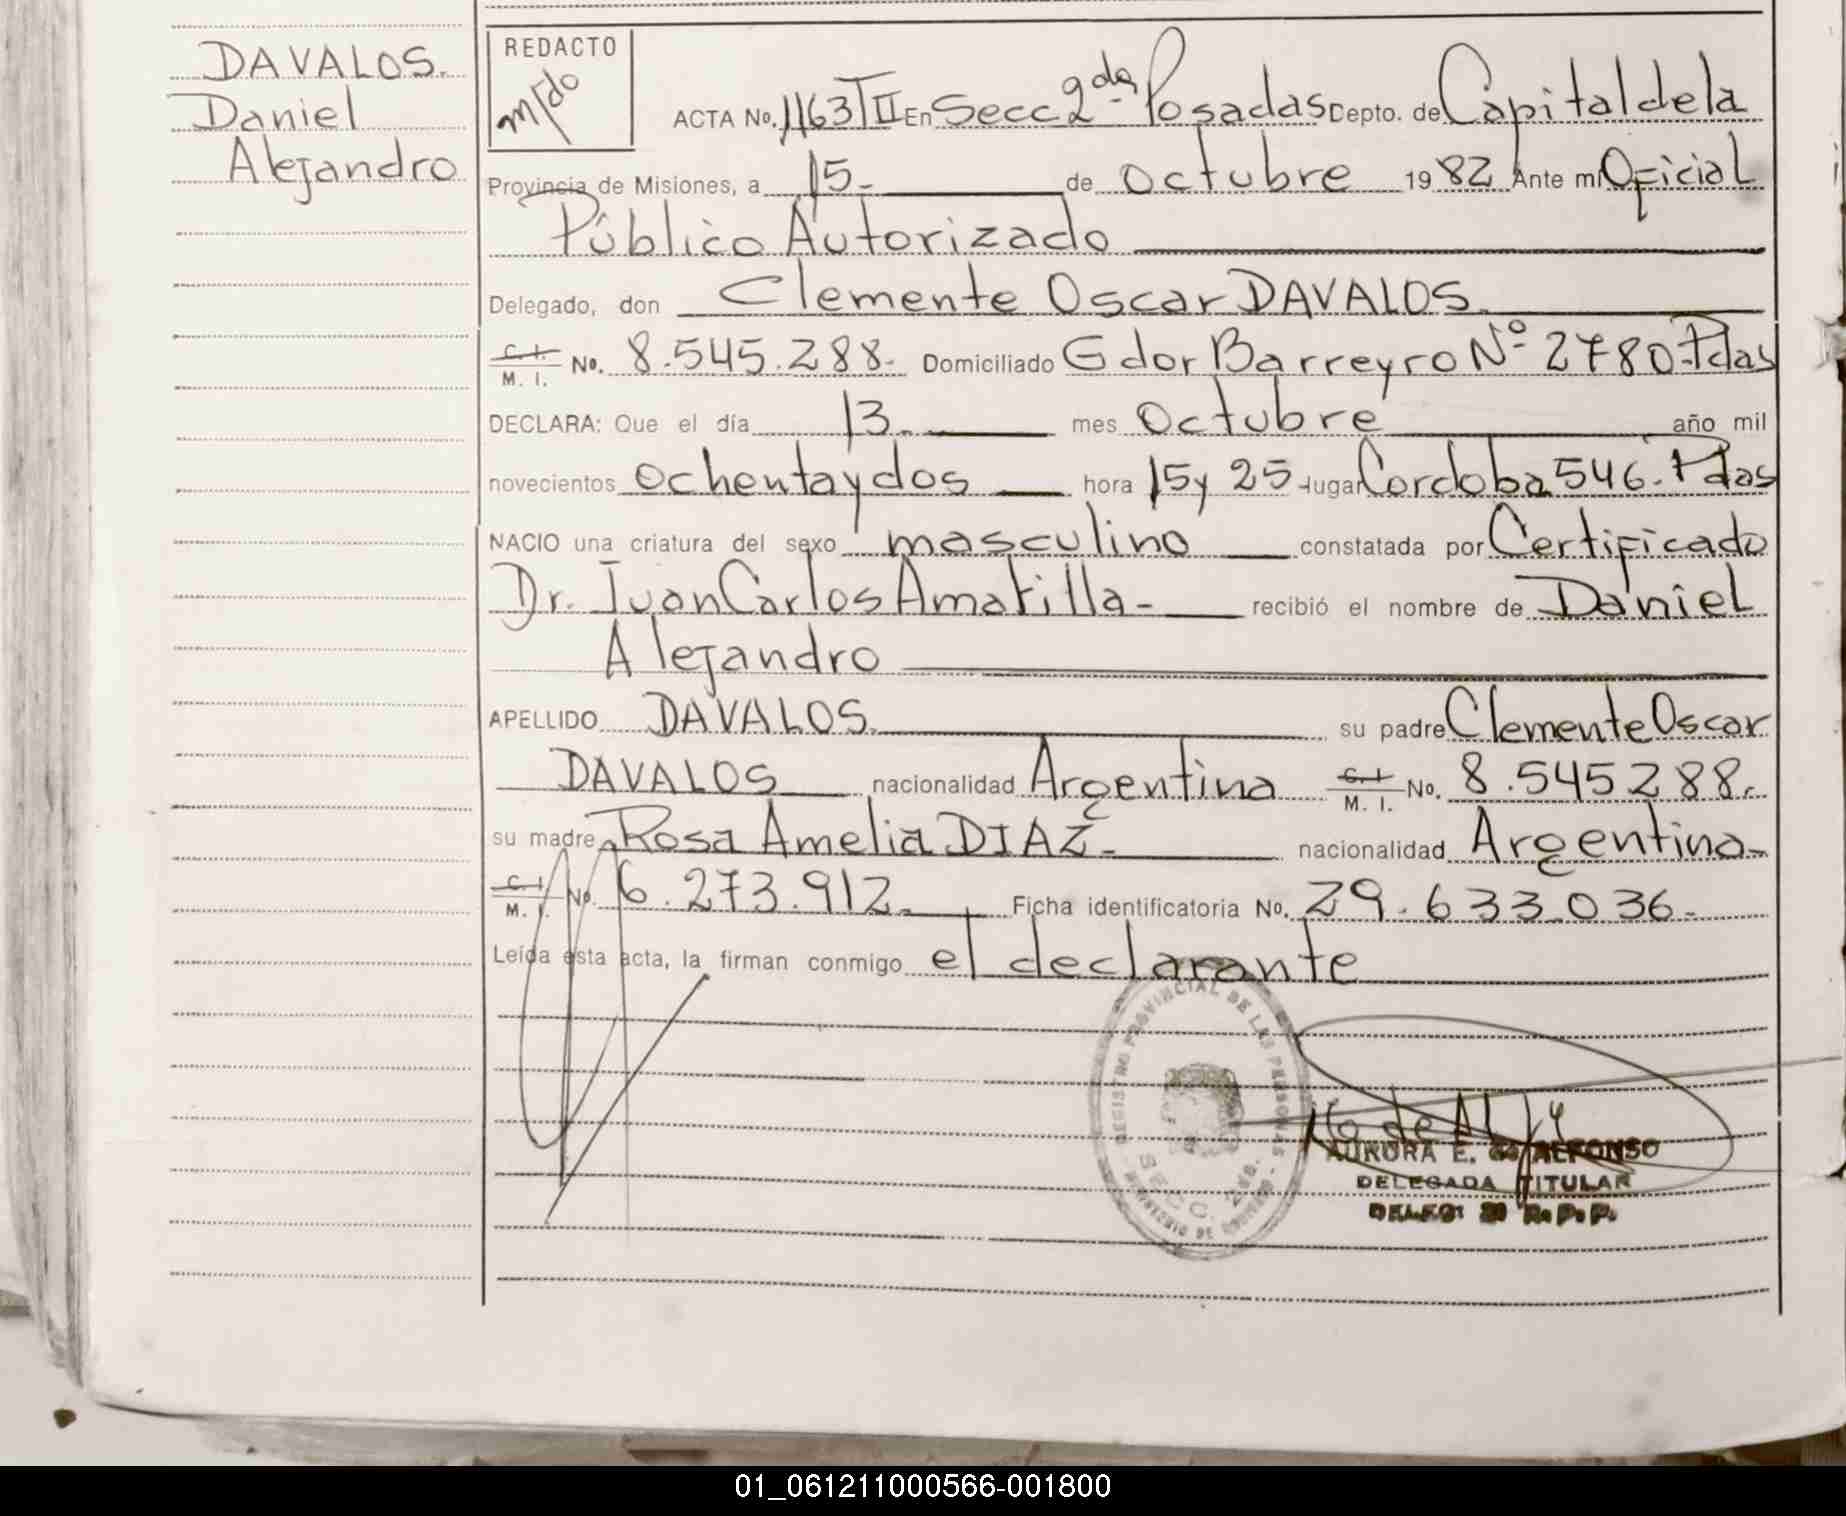 DAVALOS.
Daniel
Alejandro
REDACTO
ACTA No. 1163 T II En Secc 2da Posadas Depto. de Capital de la
Provincia de Misiones, a 15- de Octubre 1982 Ante mi Oficial
Público Autorizado
Delegado, don Clemente Oscar DAVALOS.
C. I. M. I. No. 8.545.288- Domiciliado Gdor Barreyro Nº 2780-Pdas
DECLARA: Que el día 13. mes Octubre año mil
novecientos ochenta y dos hora 15 y 25 lugar Cordoba 546. Pdas
NACIO una criatura del sexo masculino constatada por Certificado
Dr. Juan Carlos Amarilla- recibió el nombre de Daniel
Alejandro
APELLIDO DAVALOS. su padre Clemente Oscar
DAVALOS nacionalidad Argentina C. I. M. I. No. 8.545288.
su madre Rosa Amelia DIAZ- nacionalidad Argentina-
C. I. M. I. No. 6.273.912. Ficha identificatoria No. 29.633.036-
Leída esta acta, la firman conmigo el declarante
REGISTRO PROVINCIAL DE LAS PERSONAS
SECC. 2da.
AURORA E. de ALFONSO
DELEGADA TITULAR
R. P. P.
01_061211000566-001800